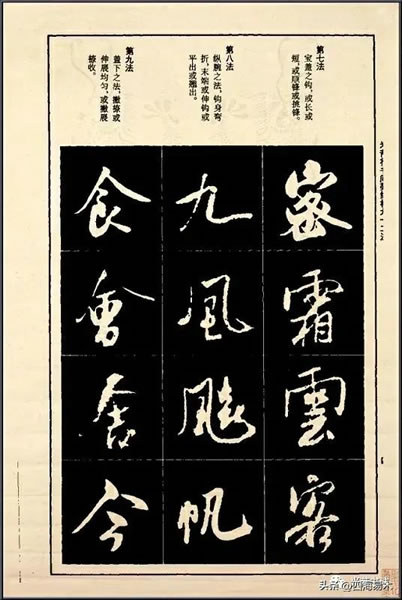 第七法
宝盖之钩，或长或
短，或顺锋或挑锋。
密
霜
雲
客
第八法
纵腕之法，钩身弯
折，末端或伸钩或
平出或翘出。
九
風
飚
帆
第九法
盖下之法，撇捺或
伸展均匀，或撇展
捺收。
食
會
舍
今
头条@四海易木